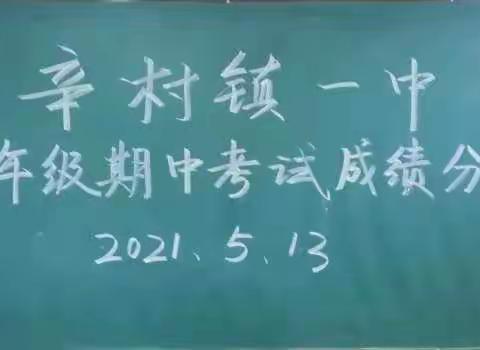 辛村镇一中
年级期中考试成绩分
2021、5、13